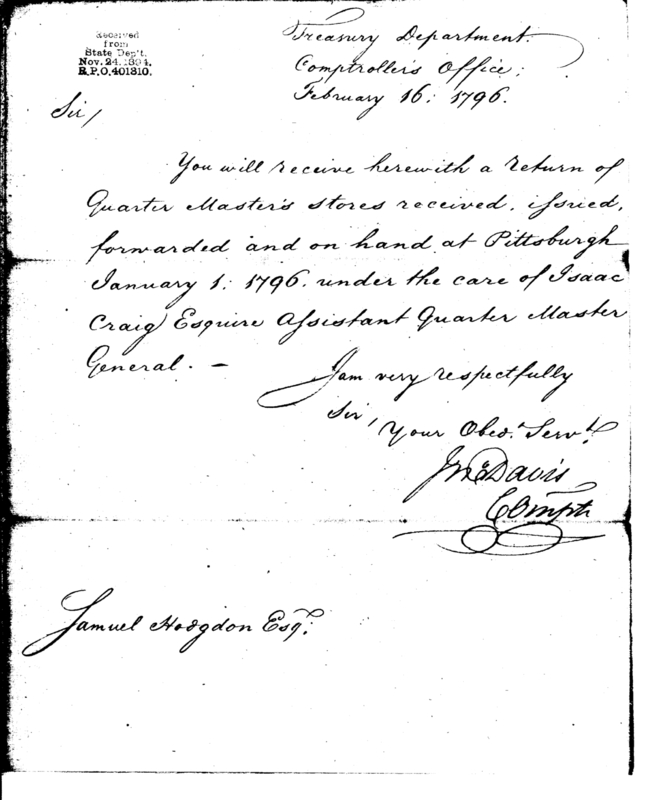 Received
from
State Dep't.
Nov. 24. 1894.
R.P.O. 401310.
Treasury Department.
Comptroller's Office;
February 16: 1796.
Sir,
You will receive herewith a return of
Quarter Master's stores received, issued,
forwarded and on hand at Pittsburgh
January 1: 1796. under the care of Isaac
Craig Esquire Assistant Quarter Master
General. —
I am very respectfully
Sir,
Your Obed.t Serv.t
Jn.o Davis
Compt
Samuel Hodgdon Esq.r